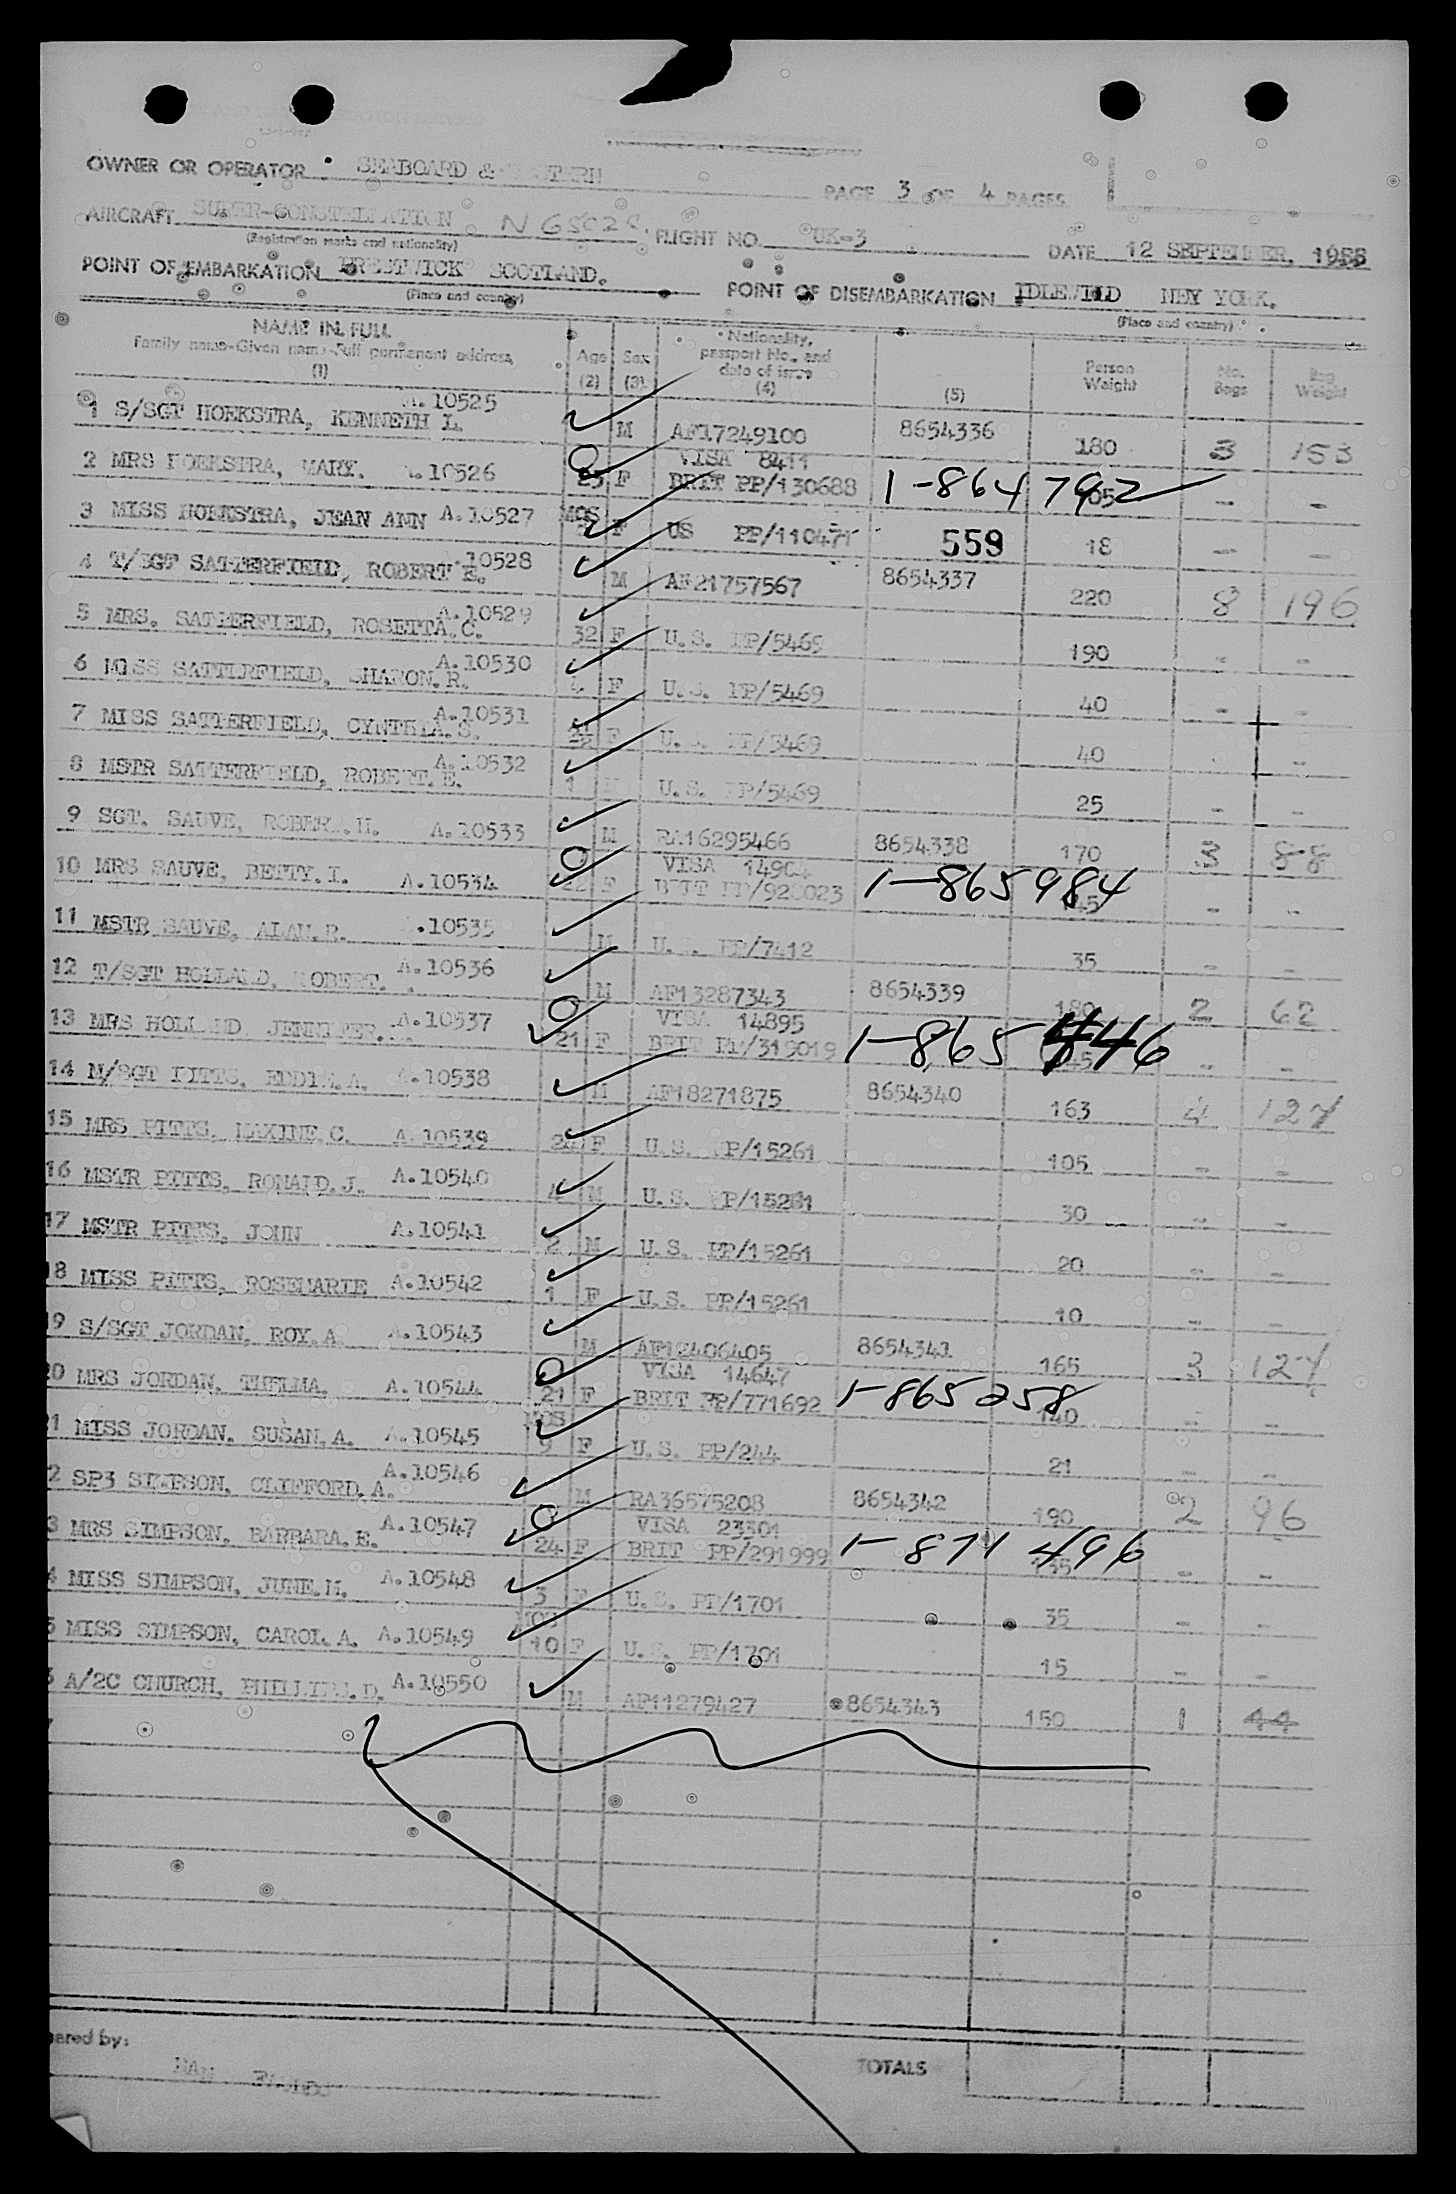 OWNER OR OPERATOR SEABOARD & WESTERN
PAGE 3 OF 4 PAGES
AIRCRAFT SUPER-CONSTELLATION N 6502C. FLIGHT NO. UK-3 DATE 12 SEPTEMBER, 1955
(Registration marks and nationality)
POINT OF EMBARKATION PRESTWICK SCOTLAND. POINT OF DISEMBARKATION IDLEWILD NEW YORK.
(Place and country) (Place and country)
NAME IN FULL
Family name-Given name-Full permanent address
(1)
Age
(2)
Sex
(3)
Nationality,
passport No., and
date of issue
(4)
(5)
Person
Weight
No.
Bags
Bag
Weight
1 S/SGT HOEKSTRA, KENNETH L. A.10525 M AF17249100 8654336 180 3 153
2 MRS HOEKSTRA, MARY. A.10526 25 F VISA 8411 BRIT PP/130688 1-864 792
3 MISS HOEKSTRA, JEAN ANN A.10527 MOS F US PP/110471 559 18 - -
4 T/SGT SATTERFIELD, ROBERT E. A.10528 M AF21757567 8654337 220 8 196
5 MRS. SATTERFIELD, ROSETTA.C. A.10529 32 F U.S. PP/5469 190 - -
6 MISS SATTERFIELD, SHARON.R. A.10530 F U.S. PP/5469 40 - -
7 MISS SATTERFIELD, CYNTHIA.S. A.10531 F U.S. PP/5469 40 -
8 MSTR SATTERFIELD, ROBERT.E. A.10532 1 M U.S. PP/5469 25 - -
9 SGT. SAUVE, ROBERT.H. A.10533 M RA16295466 8654338 170 3 88
10 MRS SAUVE, BETTY.I. A.10534 22 F VISA 14904 BRIT PP/928023 1-865984 - -
11 MSTR SAUVE, ALAN.R. A.10535 M U.S. PP/7412 35 - -
12 T/SGT HOLLAND, ROBERT. A.10536 M AF13287343 8654339 180 2 62
13 MRS HOLLAND, JENNIFER. A.10537 21 F VISA 14895 BRIT PP/319019 1-865 446 - -
14 M/SGT PITTS, EDDIE.A. A.10538 M AF18271875 8654340 163 4 127
15 MRS PITTS, MAXINE.C. A.10539 F U.S. PP/15261 105 - -
16 MSTR PITTS, RONALD.J. A.10540 4 M U.S. PP/15261 30 - -
17 MSTR PITTS, JOHN A.10541 2 M U.S. PP/15261 20 - -
18 MISS PITTS, ROSEMARIE A.10542 1 F U.S. PP/15261 10 - -
19 S/SGT JORDAN, ROY.A A.10543 M AF12406405 8654341 165 3 127
20 MRS JORDAN, THELMA. A.10544 21 F VISA 14647 BRIT PP/771692 1-865258 140 - -
21 MISS JORDAN, SUSAN.A. A.10545 MOS 9 F U.S. PP/244 21 - -
2 SP3 SIMPSON, CLIFFORD.A. A.10546 M RA36575208 8654342 190 2 96
3 MRS SIMPSON, BARBARA.E. A.10547 24 F VISA 23301 BRIT PP/291999 1-871 496 135 - -
4 MISS SIMPSON, JUNE.M. A.10548 3 F U.S. PP/1701 35 - -
5 MISS SIMPSON, CAROL.A. A.10549 MOS 10 F U.S. PP/1701 15 - -
6 A/2C CHURCH, PHILLIP.D. A.10550 M AF11279427 8654343 150 1 44
ared by:
TOTALS